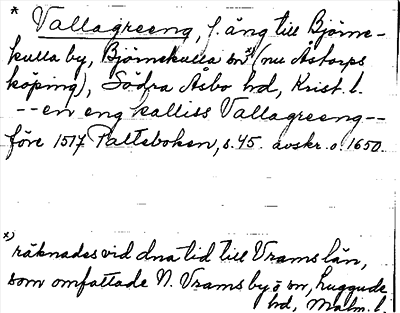 * Vallagreeng, f. äng till Björne-
kulla by, Björnekulla sn*) (nu Åstorps
köping), Södra Åsbo hd, Krist. l.
--en eng kalliss Vallagreeng--
före 1517 Palteboken, s. 45. avskr. o. 1650.
*) räknades vid dna tid till Vrams län,
som omfattade N. Vrams by o sn, Luggude
hd, Malm. l.